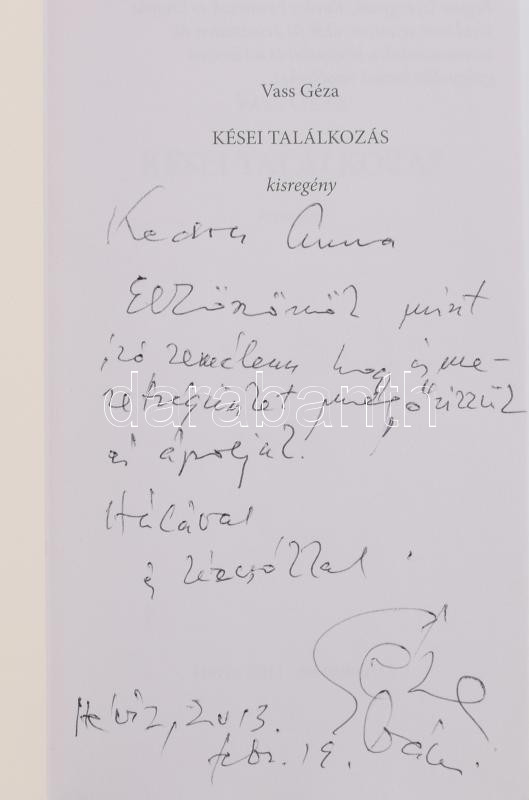 Vass Géza
KÉSEI TALÁLKOZÁS
kisregény
Kedves Anna
Elköszönök mint
író remélem hogy isme-
retségünket megőrizzük
és ápoljuk!
darabanth
Hálával
és kézcsókkal.
Géza
Hévíz, 2013.
febr. 19.